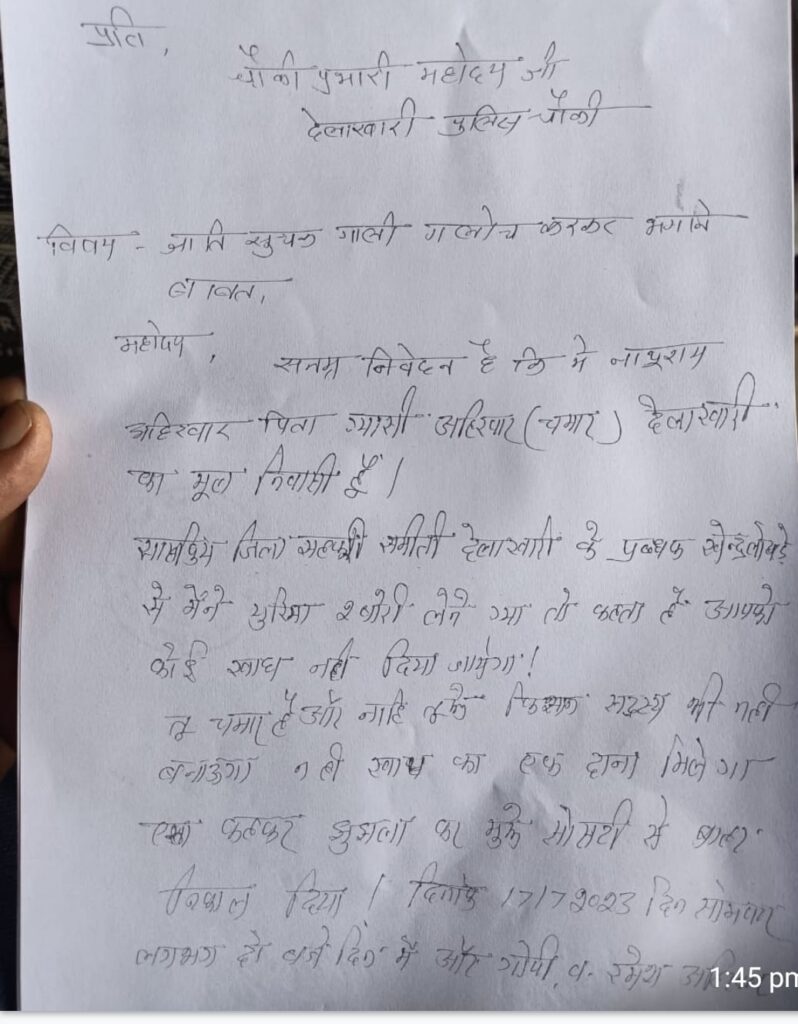 प्रति,
चौकी प्रभारी महोदय जी
देलाखारी पुलिस चौकी
विषय - जाति सुचक गाली गलोच करकर भगाने
बाबत,
महोदय,
सनम्र निवेदन है कि मे नाथुराम
अहिरवार पिता ग्यासी अहिरवार (चमार) देलाखारी
का मूल निवासी हूँ |
जिला समीती देलाखारी के प्रबंधक
से मैंने युरिया २ बोरी लेने गया तो कहता है आपको
कोई खाध नही दिया जायेगा!
तू चमार है और नाहि तुझे किसान सदस्य भी नही
बनाऊगा न ही खाध का एक दाना मिलेगा
एसा कहकर झुझला कर मुझे सोसटी से बाहर
निकाल दिया | दिनांक 17/7 2023 दिन सोमवार
लगभग दो बजे दिन मे और गोपी व रमेश
1:45 pm